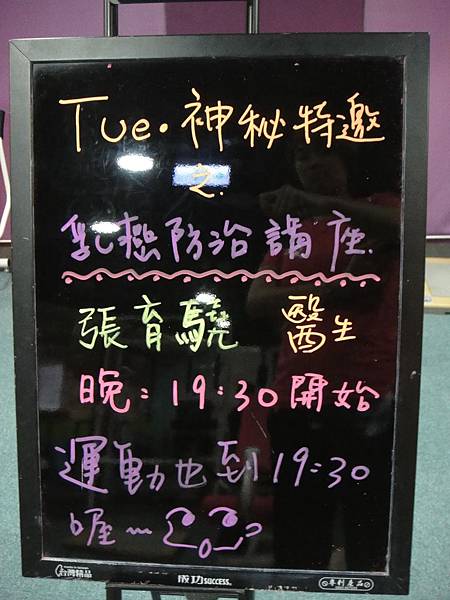 Tue. 神秘特邀
之.
乳癌防治講座.
張育驍 醫生
晚: 19:30 開始
運動也到19:30
喔~
台灣精品
成功 SUCCESS.
專利產品